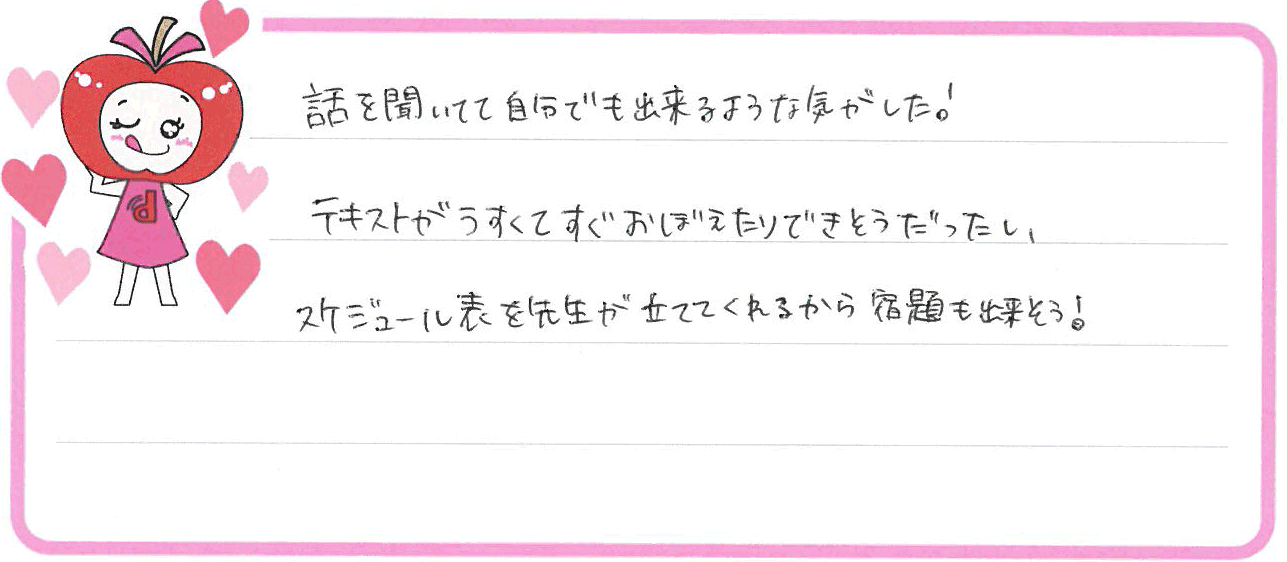 話を聞いてて自分でも出来るような気がした!
テキストがうすくてすぐおぼえたりできそうだったし、
スケジュール表を先生が立ててくれるから宿題も出来そう!